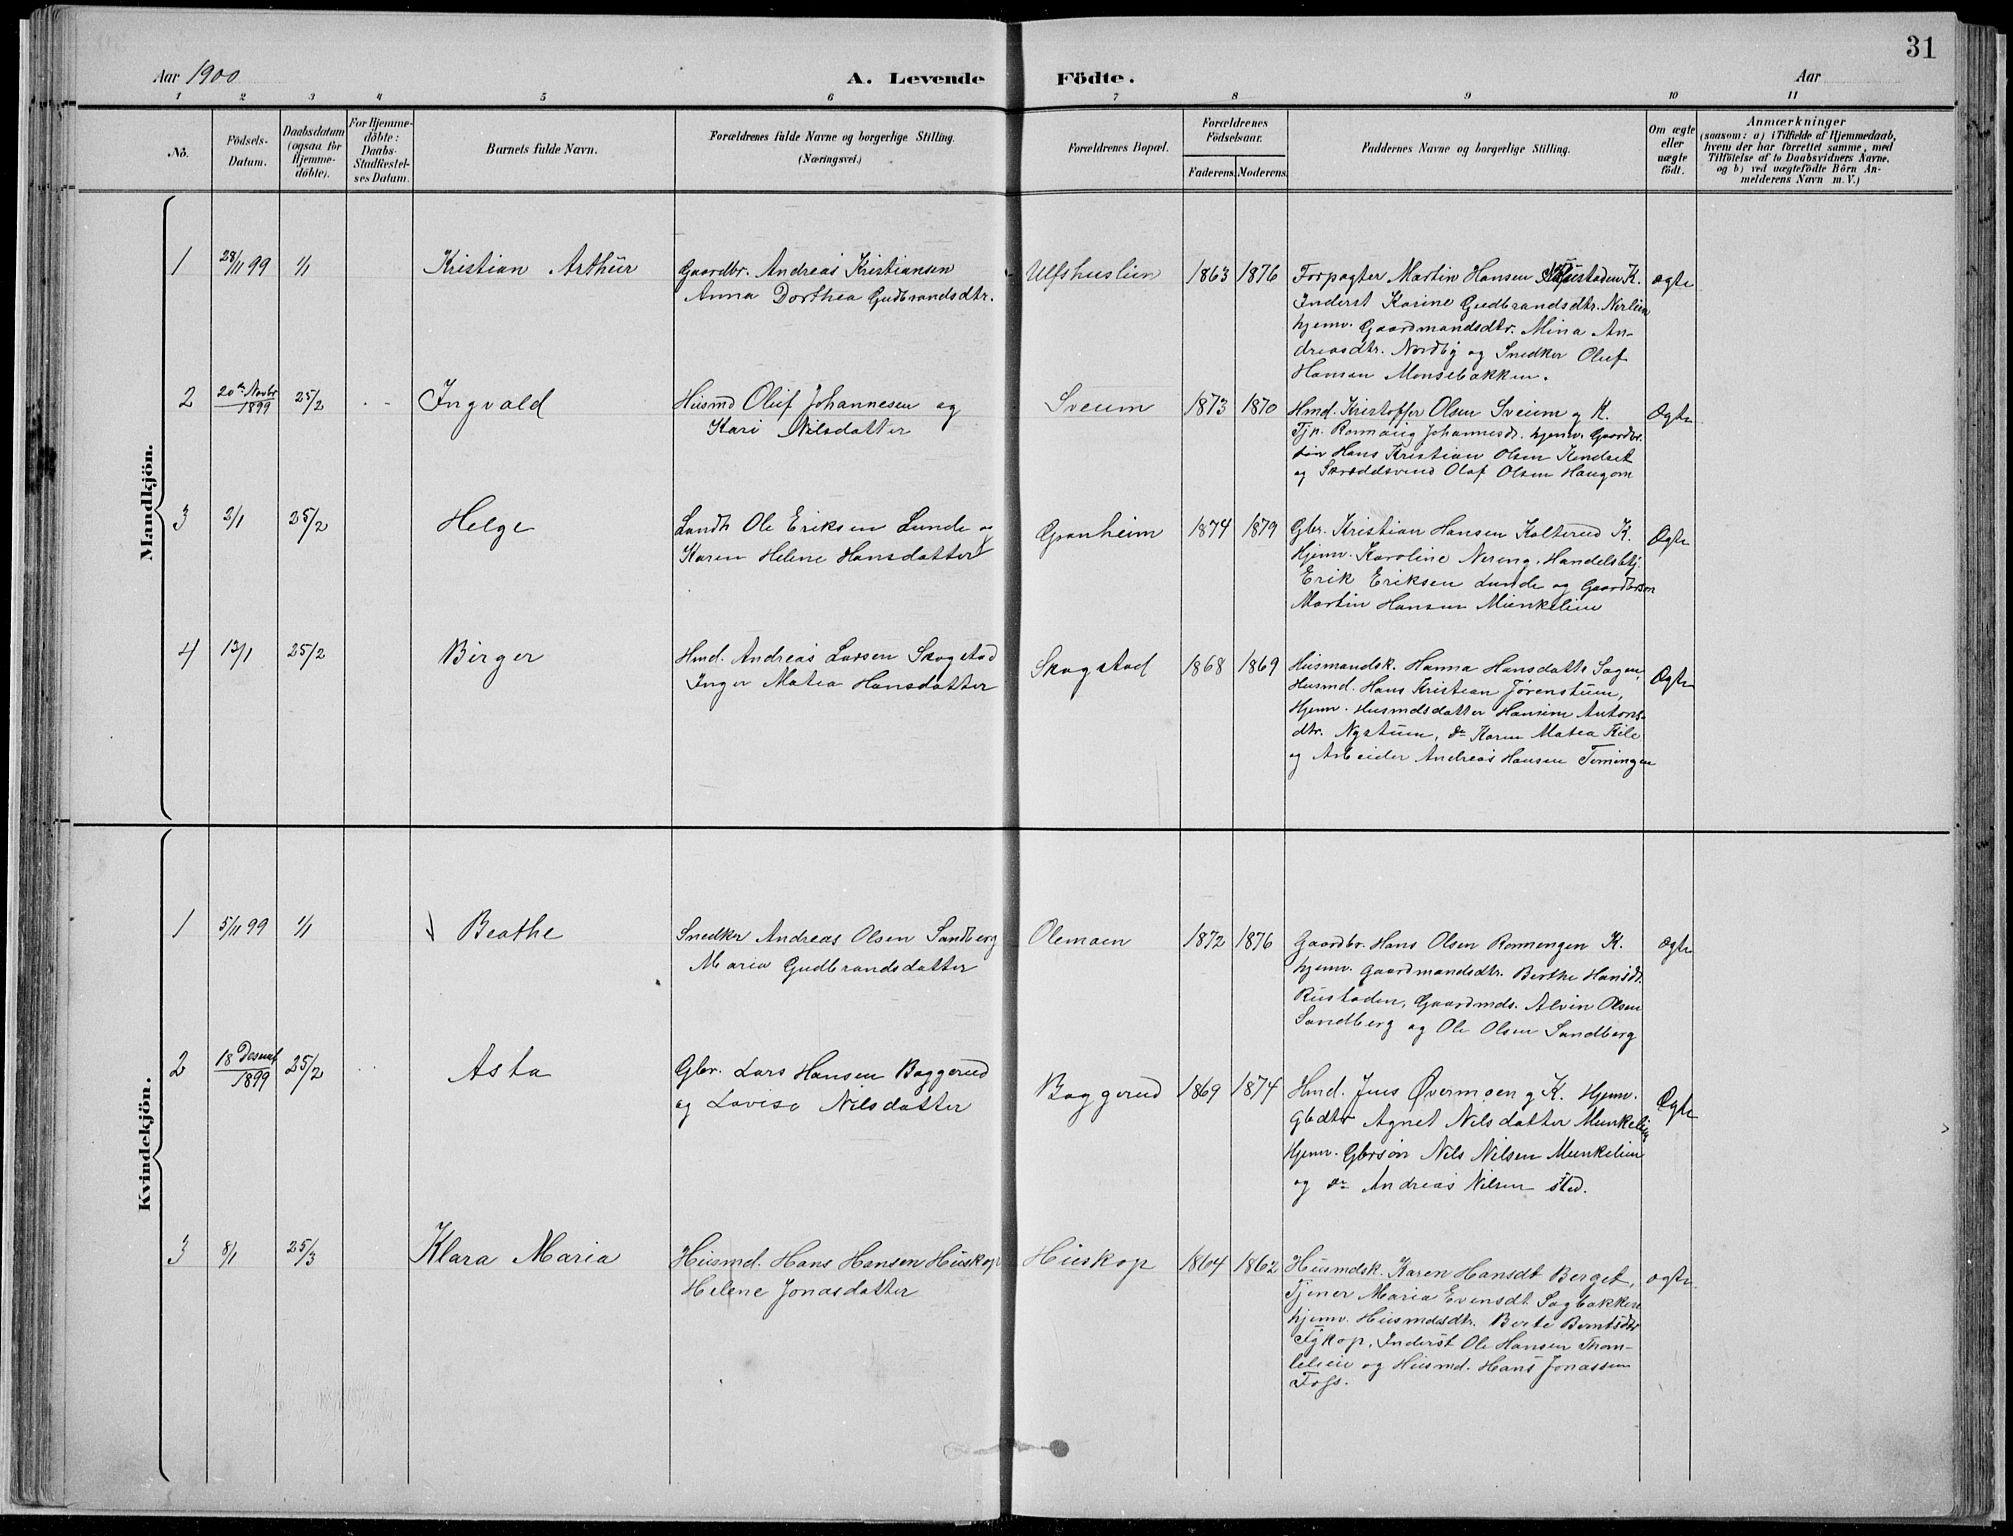 31
Aar 1900
A. Levende Födte.
Aar
1 2 3 4 5 6 7 8 9 10 11
No.
Födsels-
Datum.
Daabsdatum
(ogsaa for
Hjemme-
döbte).
For Hjemme-
döbte:
Daabs-
Stadfestel-
ses Datum.
Barnets fulde Navn.
Forældrenes fulde Navne og borgerlige Stilling.
(Næringsvei.)
Forældrenes Bopæl.
Forældrenes
Födselsaar.
Faderens. Moderens.
Faddernes Navne og borgerlige Stilling.
Om ægte
eller
uægte
födt.
Anmærkninger
(saasom: a) i Tilfælde af Hjemmedaab,
hvem der har forrettet samme, med
Tilföielse af to Daabsvidners Navne,
og b) ved uægtefödte Börn An-
melderens Navn m. V.)
Mandkjön.
1 28/11 99 1/1 Kristian Arthur
Gaardbr. Andreas Kristiansen
Anna Dorthea Gudbrandsdtr.
Ulfshuslien 1863 1876
Forpagter Martin Hansen K.
Inderst Karine Gudbrandsdtr. Nerlien
hjemv. Gaardmandsdtr. Mina An-
dreasdtr. Nordby og Snedker Oluf
Hansen Monsebakken.
ægte
2 20de Novbr 1899 25/2 Ingvald
Husmd Oluf Johannesen og
Kari Nilsdatter
Sveum 1873 1870
Hmd. Kristoffer Olsen Sveum g K.
Tjp. Rønnaug Johannesdt. hjemv. Gaardbr.
søn Hans Kristian Olsen Kindset
og Skræddsvend Olaf Olsen Haugom
Ægte
3 2/1 25/2 Helge
Landh Ole Eriksen Lunde og
Karen Helene Hansdatter
Granheim 1874 1879
Gbr. Kristian Hansen Kolterud K.
Hjemv. Karoline Nereng, Handelsbtj.
Erik Eriksen Lunde og Gaardbrsøn
Martin Hansen Munkelien
Ægte
4 13/1 25/2 Birger
Hmd. Andreas Larsen Skogstad
Inger Matea Hansdatter
Skogstad 1868 1869
Husmandsk. Hanna Hansdatte Sagen,
Husmd. Hans Kristian Jørenstuen,
Hjemv. Husmdsdatter Hansine Antons-
dtr. Nystuen, do Karen Matea Kile
og Arbeider Andreas Hansen
Ægte
Kvindekjön.
1 5/11 99 1/1 Beathe
Snedker Andreas Olsen Sandberg
Maria Gudbrandsdatter
Olemoen 1872 1876
Gaardbr. Hans Olsen Rønnengen K.
hjemv. Gaardmandsdtr. Berthe Hansdt.
Rustaden, Gaardmds. Alvin Olsen
Sandberg og Ole Olsen Sandberg
ægte
2 18 1899 25/2 Asta
Gbr. Lars Hansen Baggerud
og Lovise Nilsdatter
Baggerud 1869 1874
Hmd. Jens Øvermoen g K. Hjemv.
Gbdtr Agnet Nilsdatter Munkelien
Hjemv. Gbrsøn Nils Nilsen Munkelien
og do Andreas Nilsen sted.
Ægte
3 8/1 25/3 Klara Maria
Husmd. Hans Hansen Huskop
Helene Jonasdatter
Huskop 1864 1862
Husmdsk. Karen Hansdt Berget,
Tjener Maria Evensdt. Sagbakken
hjemv. Husmdsdtr. Berte Berntsdtr
Inderst Ole Hansen Thom-
leleie og Husmd. Hans Jonassen
Foss.
ægte